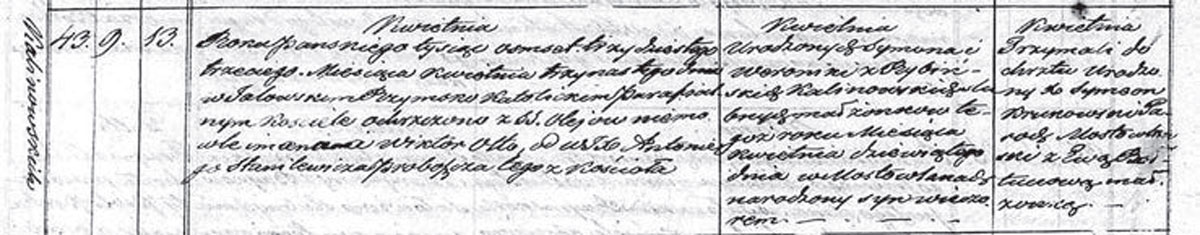 Kalinowskich
43. 9. 13.
Kwietnia
Roku Pańskiego tysiąc osmset trzydziestego
trzeciego Miesiąca Kwietnia trzynastego dnia
w Jałowskim Rzymsko Katolickim parafial
nym Kościele ochrzczono z SS. Olejów niemo
wle imiena Wiktor Otto, od WJX Antonie
go Stanilewicza Proboszcza tegoż Kościoła
Kwietnia
Urodzonych Symona i
Weroniki z Rybiń-
skich Kalinowskich
małżonków te-
goż roku Miesiąca
Kwietnia dziewiątego
dnia w Mostowlanach
narodzony syn wieczo
rem
Kwietnia
Trzymali do
chrztu Urodzo
ny Symeon
Pa-
roch Mostowlań
ski z Ewą
mał.
żonką